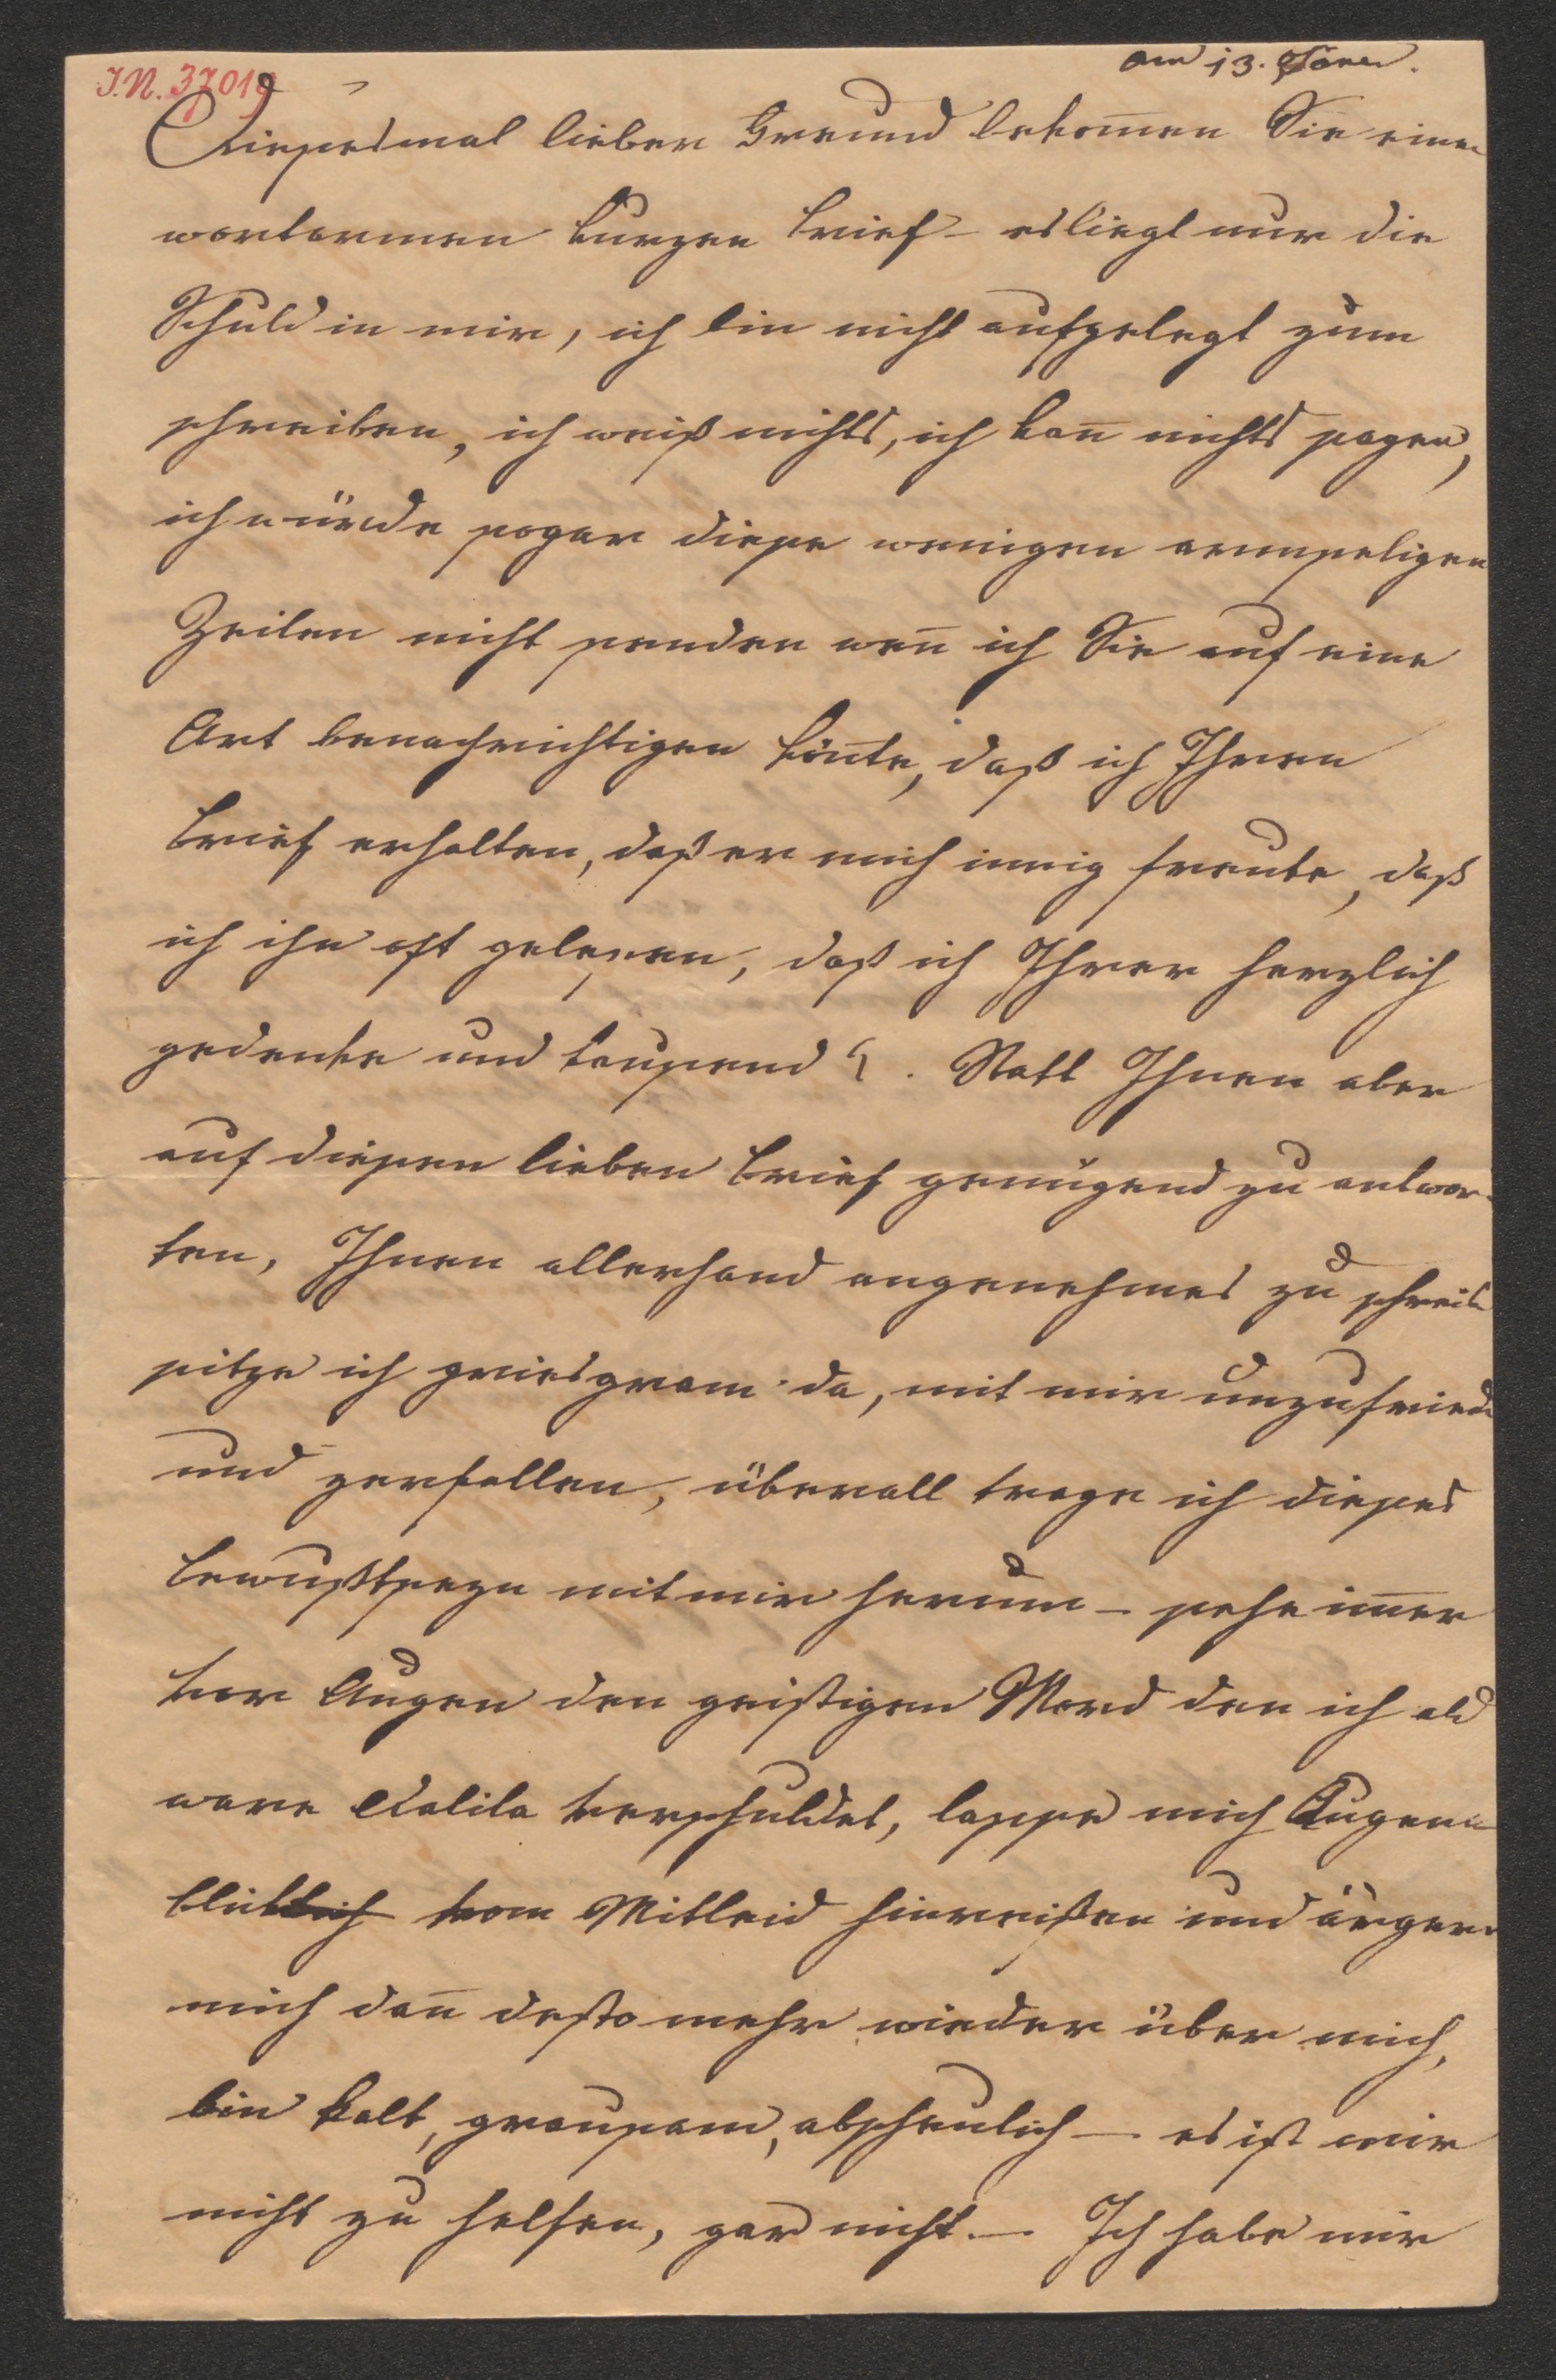 I.N. 37019
am 13. Jäner.
Diesesmal lieber Freund bekom̅en Sie einen
wortarmen kurzen Brief – es liegt nur die
Schuld in mir, ich bin nicht aufgelegt zum
schreiben, ich weiß nichts, ich kan̅ nichts sagen,
ich würde sogar diese wenigen armseligen
Zeilen nicht senden wen̅ ich Sie auf eine
Art benachrichtigen kön̅te, daß ich Ihren
Brief erhalten, daß er mich innig freute, daß
ich ihn oft gelesen, daß ich Ihrer herzlich
gedenke und tausend . Statt Ihnen aber
auf diesen lieben Brief genügend zu antwor-
ten, Ihnen allerhand angenehmes zu schreiben
sitze ich griesgram da, mit mir unzufrieden
und zerfallen, überall trage ich dieses
Bewußtseyn mit mir herum – sehe im̅er
vor Augen den geistigen Mord den ich als
ware Dalila verschuldet, lasse mich Augen-
blicklich vom Mitleid hinreißen und ärgere
mich dan̅ desto mehr wieder über mich,
bin kalt, grausam, abscheulich – es ist mir
nicht zu helfen, gar nicht. – Ich habe mir